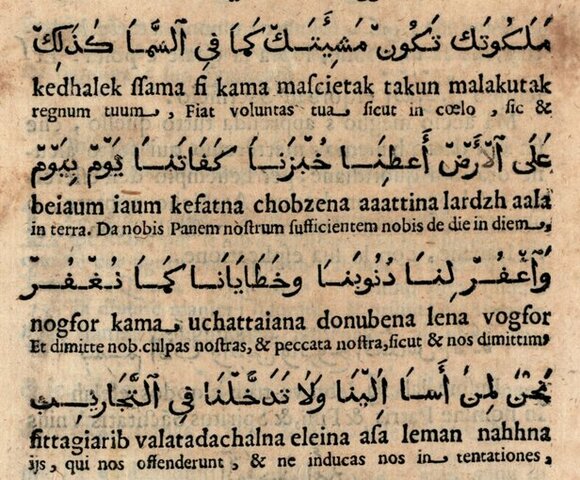 مَلَكُوتَك تَكُونّ مَشِيئَتَكّ كَمَا فِي السَّمَا كَذَلِكّ
kedhalek ſſama fi kama maſcietak takun malakutak
regnum tuum, Fiat voluntas tua ſicut in cœlo, ſic &
عَلَي الّاَرّضّ أَعطِنَا خُبّزَنَا كَفَاتنَا يَوّمّ بِيَوّمّ
beiaum iaum kefatna chobzena aaattina lardzh aala
in terra. Da nobis Panem noſtrum ſufficientem nobis de die in diem,
وَآغّفُرّ لِنَا دُنُوبَنَا وخَطَايَانَا كَمَا نُغّفُرّ
nogfor kama, uchattaiana donubena lena vogfor
Et dimitte nob. culpas noſtras, & peccata noſtra, ſicut & nos dimittim,
نَحّنُ لِمَنّ أَسَا اَلَيّنَا وَلَا تَدَخَّلّنَا فِي اَلتَّجَارِيبّ
fittagiarib valatadachalna eleina aſa leman nahhna
ijs, qui nos offenderunt, & ne inducas nos in tentationes,